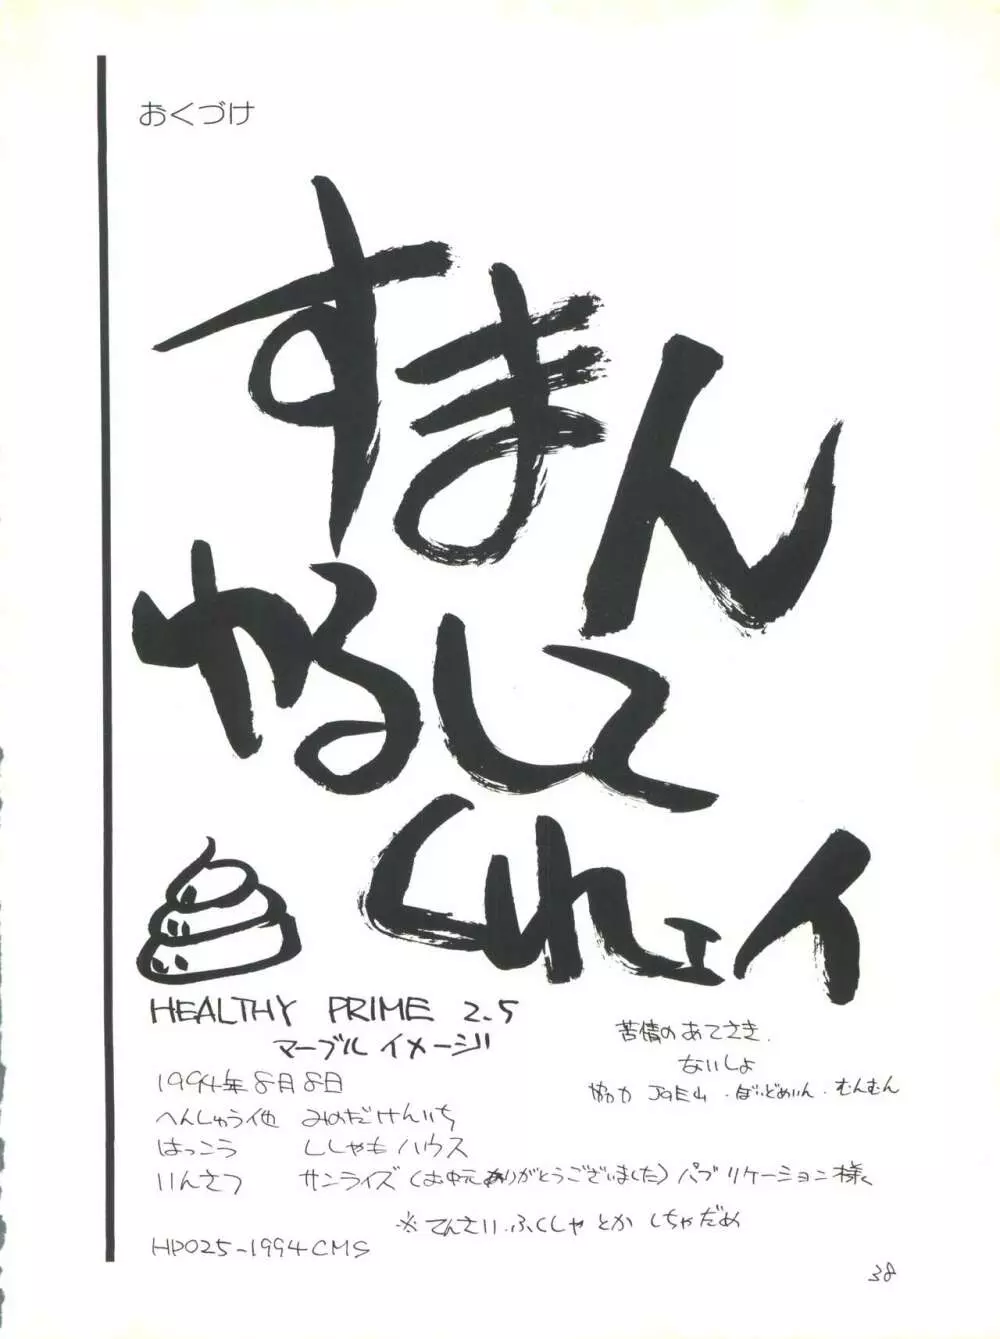 おくづけ
すまん
ゆるして
くれェイ
HEALTHY PRIME 2.5
マーブルイメージ
苦情のあてさき.
ないしょ
協力 JaEム ・ ぼいどめいん ・ むんむん
1994年8月8日
へんしゅう他 みのだけんいち
はっこう ししゃもハウス
いんさつ サンライズ(お中元ありがとうございました)パブリケーション様
※てんさい.ふくしゃとかしちゃだめ
HP025-1994CMS
38